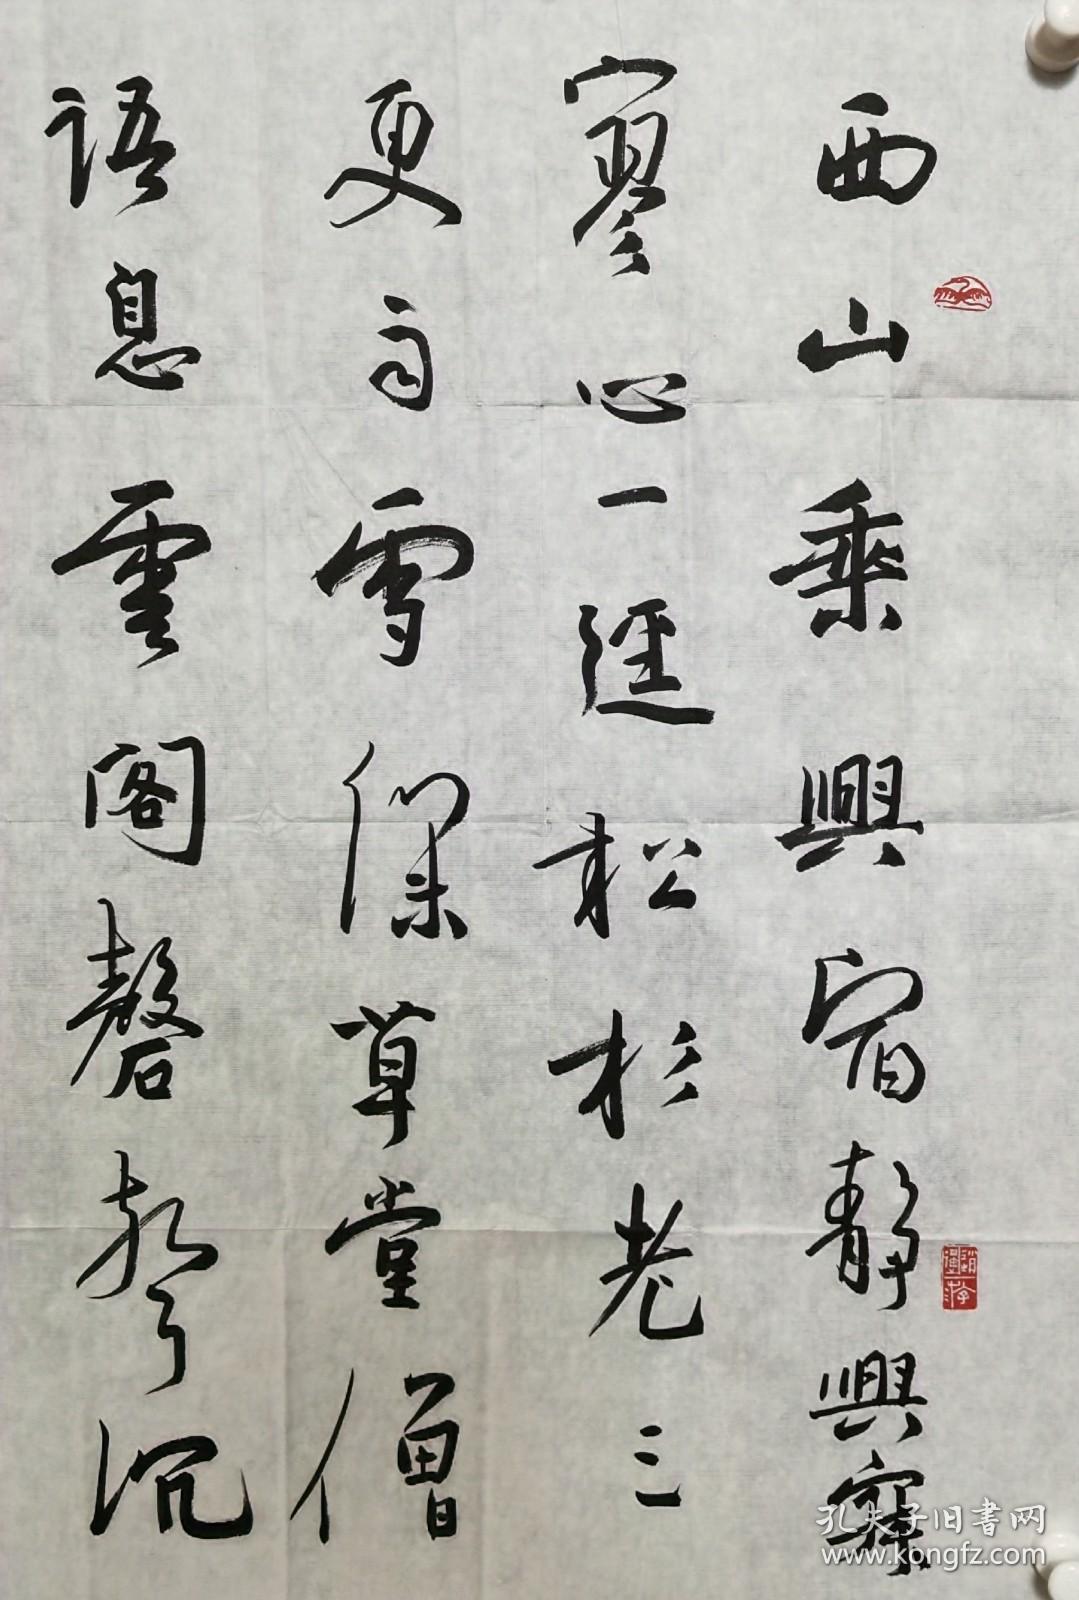 西山乘興宿靜興寂
寥心一逕松杉老三
更雨雪深草堂僧
語息雲閣磬聲沉
孔夫子旧書网
www.kongfz.com